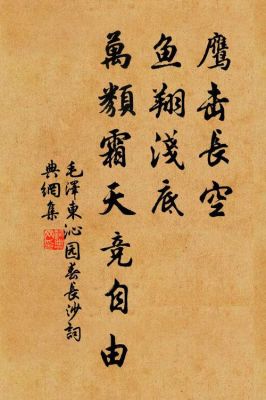 鹰击长空
鱼翔浅底
萬類霜天竞自由
毛澤東沁园春长沙詞
典網集